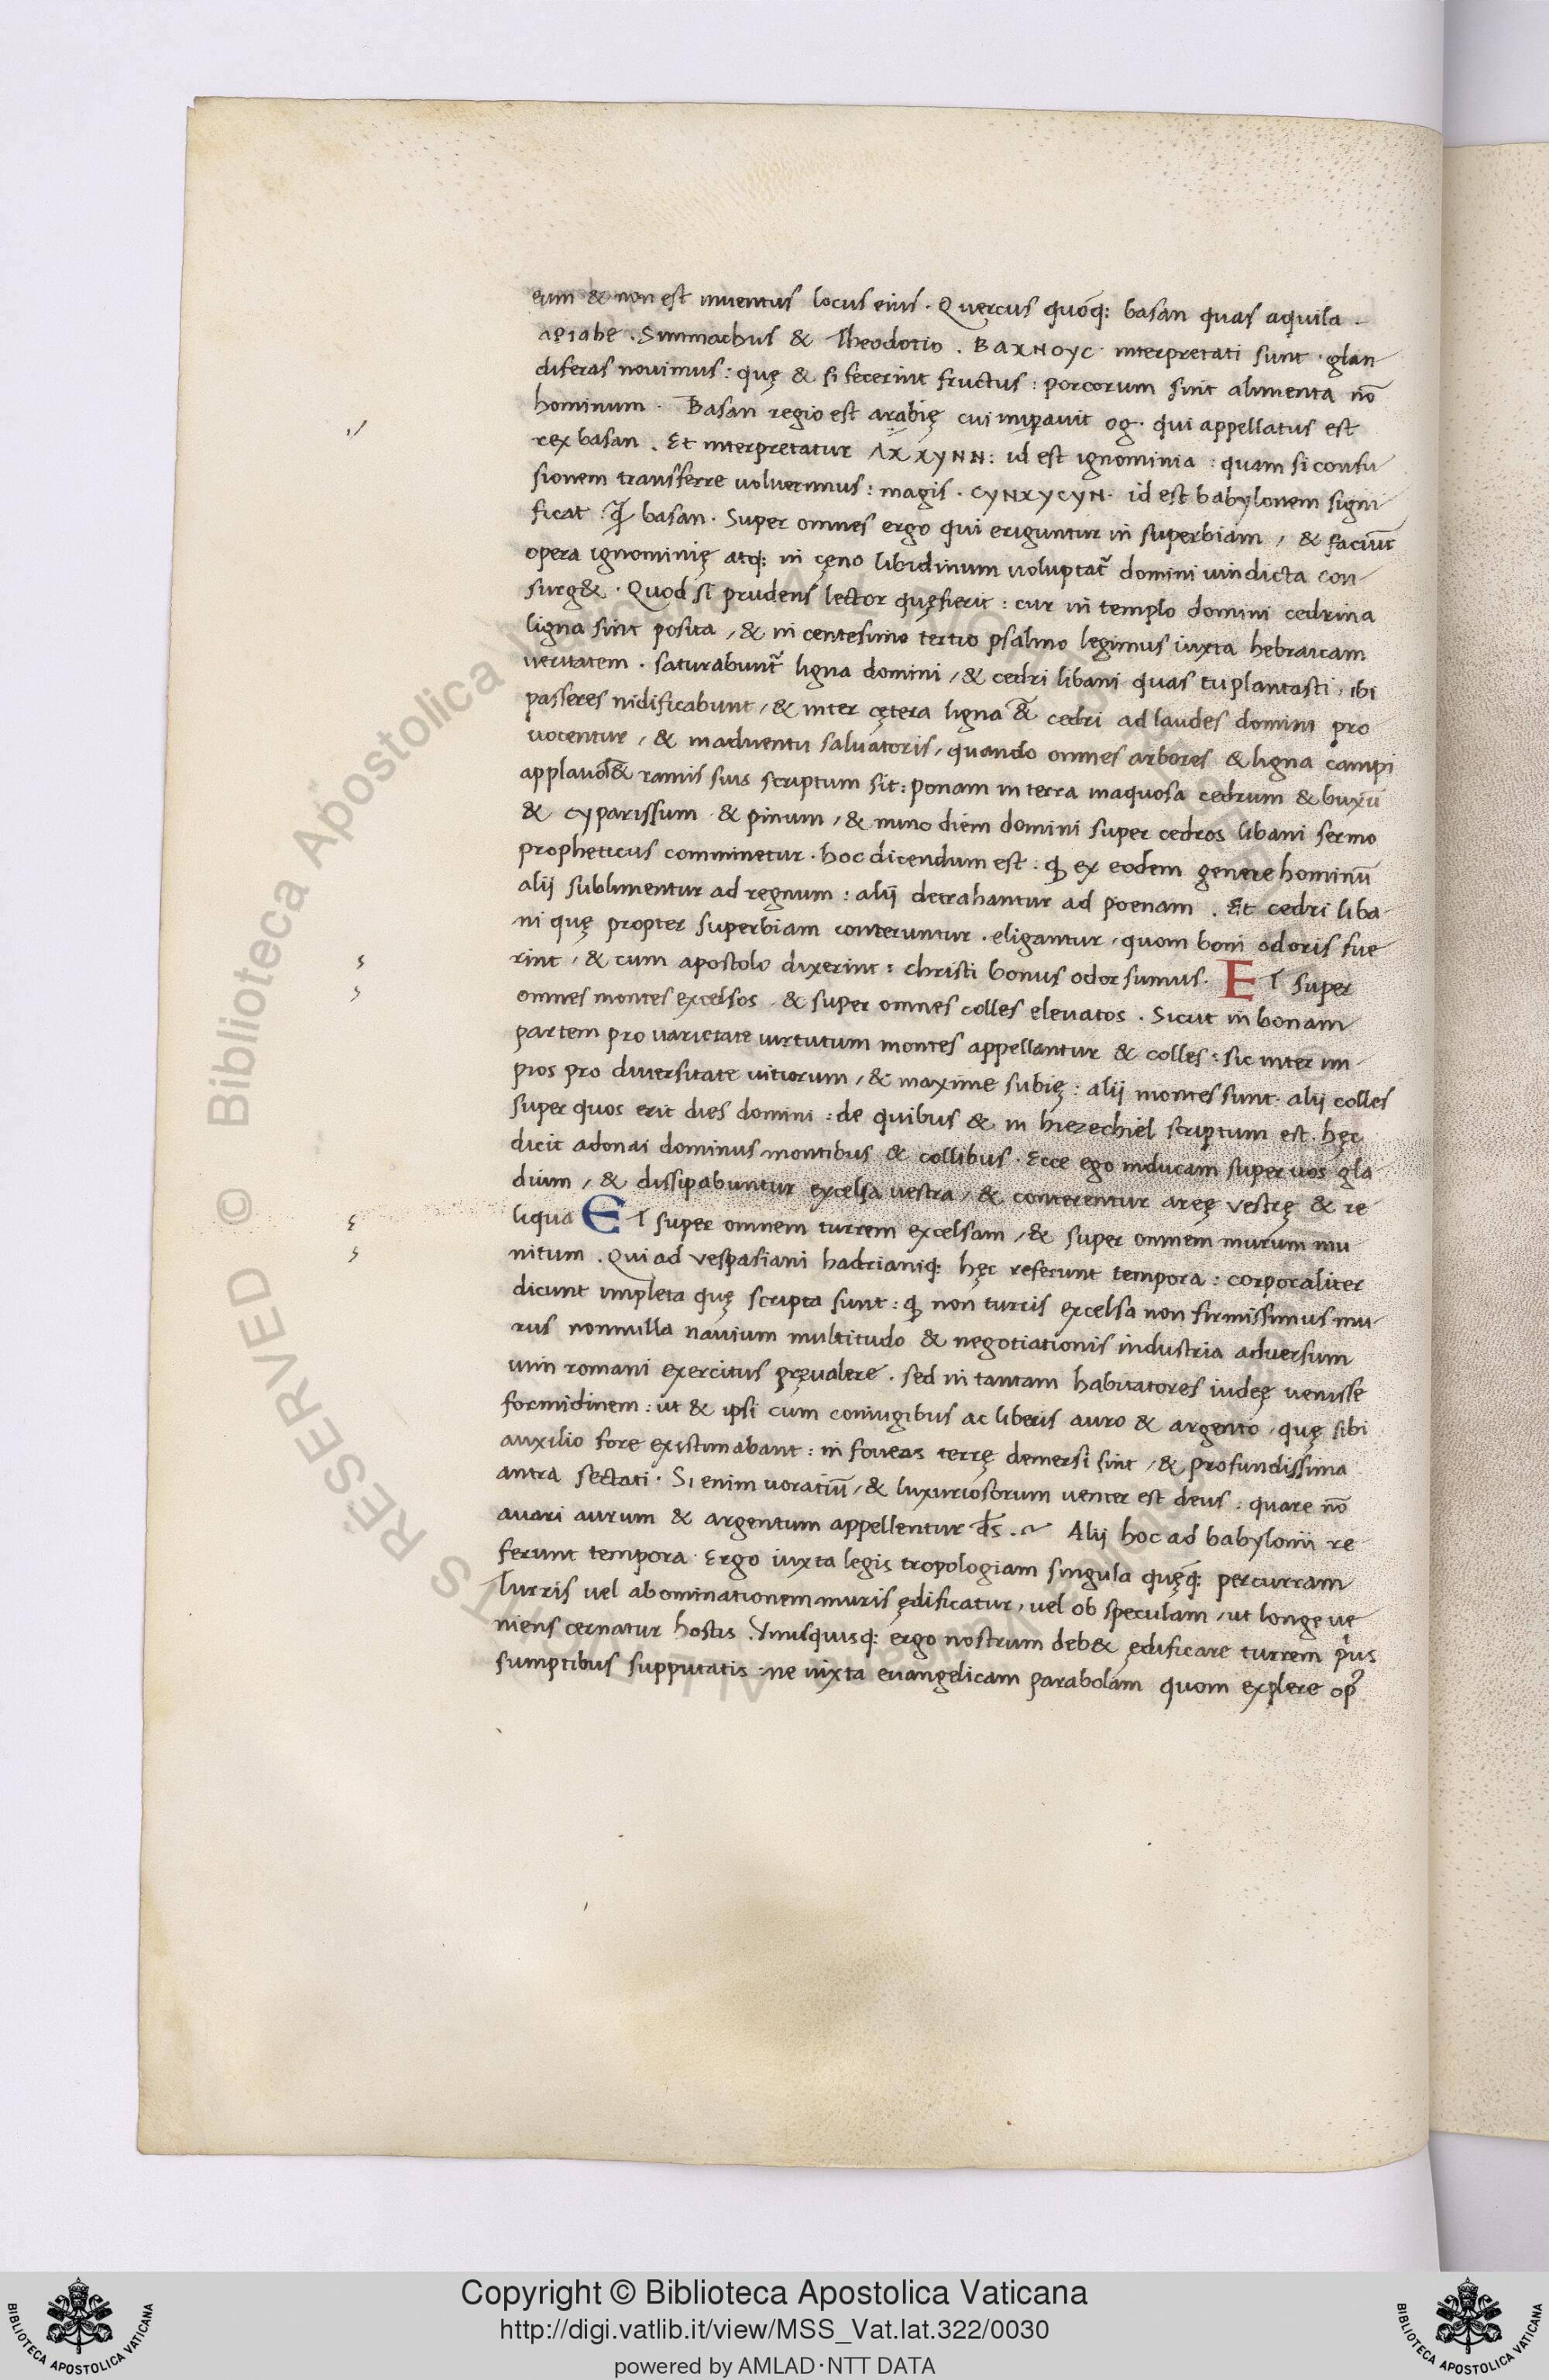 eum & non est inuentus locus eius . Quercus quoq: basan quas aquila .
Simmachus & Theodotio . BAXNOYC · interpretati sunt · glan
diferas nouimus : quę & si fecerint fructus : porcorum sint alimenta nō
hominum · Basan regio est arabię cui imꝑauit og · qui appellatus est
rex basan . Et interpretatur ΛΧΧΥΝΝ : id est ignominia : quam si confu
sionem transferre voluerimus : magis · CYNXYCYN · id est babylonem signi
ficat : basan · Super omnes ergo qui eriguntur in superbiam / & faciūt
opera ignominię atq: in cęno libidinum voluptat᷑ domini uindicta con-
surg& · Quod si prudens lector quęsierit : cur in templo domini cedrina
ligna sint posita / & in centesimo tertio psalmo legimus iuxta hebraicam
ueritatem · saturabunt᷑ ligna domini / & cedri libani quas tu plantasti , ibi
passeres nidificabunt / & inter cętera ligna cedri ad laudes domini pro
uocentur / & in aduentu saluatoris / quando omnes arbores & ligna campi
applaud& ramis suis scriptum sit : ponam in terra inaquosa cedrum & buxū
& cyparissum · & pinum / & nunc diem domini super cedros libani sermo
propheticus comminetur · hoc dicendum est : ꝙ ex eodem genere hominū
alij sublimentur ad regnum : alij detrahantur ad poenam . Et cedri liba-
ni quę propter superbiam conteruntur . eligantur , quom boni odoris fue
rint , & cum apostolo dixerint : christi bonus odor sumus . ET super
omnes montes excelsos · & super omnes colles eleuatos . Sicut in bonam
partem pro uarietate uirtutum montes appellantur & colles : sic inter im-
pios pro diuersitate uitiorum / & maxime subię : alij montes sunt · alij colles
super quos erit dies domini : de quibus & in hiezechiel scriptum est . hęc
dicit adonai dominus montibus & collibus . Ecce ego inducam super uos gla
dium / & dissipabuntur excelsa uestra / & conterentur areę vestrę & re
liqua ET super omnem turrem excelsam / & super omnem murum mu
nitum . Qui ad vespasiani hadrianiq: hęc referunt tempora : corporaliter
dicunt impleta quę scripta sunt : ꝙ non turris excelsa non firmissimus mu-
rus nonnulla nauium multitudo & negotiationis industria aduersum
uim romani exercitus pręualere . sed in tantam habitatores iudeę uenisse
formidinem : ut & ipsi cum coniugibus ac liberis auro & argento , quę sibi
auxilio fore existimabant : in foueas terrę demersi sint / & profundissima
antra sectati . Si enim uoratiū / & luxuriosorum uenter est deus : quare nō
auari aurum & argentum appellentur ds̄ . ~ Alij hoc ad babylonii re
ferunt tempora · Ergo iuxta legis tropologiam singula quęq: percurram
Turris uel abominationem muris ędificatur , uel ob speculam / ut longe ue
niens cernatur hostis . Vnusquisq: ergo nostrum deb& ędificare turrem pͥus
sumptibus supputatis : ne iuxta euangelicam parabolam quom explere
Copyright © Biblioteca Apostolica Vaticana
http://digi.vatlib.it/view/MSS_Vat.lat.322/0030
powered by AMLAD·NTT DATA